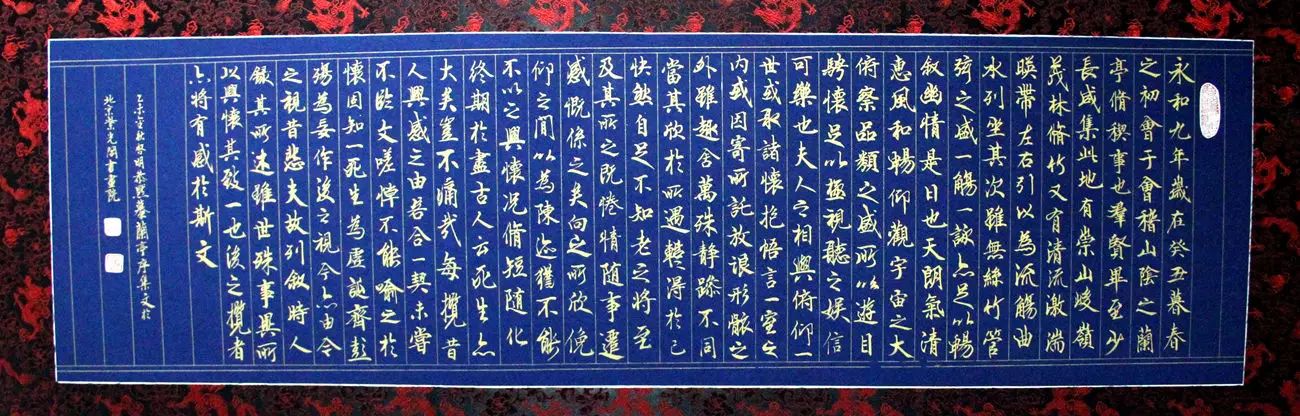 永和九年歲在癸丑暮春
之初會于會稽山陰之蘭
亭脩稧事也羣賢畢至少
長咸集此地有崇山峻嶺
茂林脩竹又有清流激湍
暎帶左右引以為流觴曲
水列坐其次雖無絲竹管
弦之盛一觴一詠亦足以暢
敘幽情是日也天朗氣清
惠風和暢仰觀宇宙之大
俯察品類之盛所以遊目
騁懷足以極視聽之娛信
可樂也夫人之相與俯仰一
世或取諸懷抱悟言一室之
內或因寄所託放浪形骸之
外雖趣舍萬殊靜躁不同
當其欣於所遇暫得於己
快然自足不知老之將至
及其所之既惓情隨事遷
感慨係之矣向之所欣俛
仰之間以為陳迹猶不能
不以之興懷況脩短隨化
終期於盡古人云死生亦
大矣豈不痛哉每攬昔
人興感之由若合一契未嘗
不臨文嗟悼不能喻之於
懷固知一死生為虛誕齊彭
殤為妄作後之視今亦由今
之視昔悲夫故列敘時人
錄其所述雖世殊事異所
以興懷其致一也後之攬者
亦將有感於斯文
蘭亭序集文於
北京紫光閣書畫院